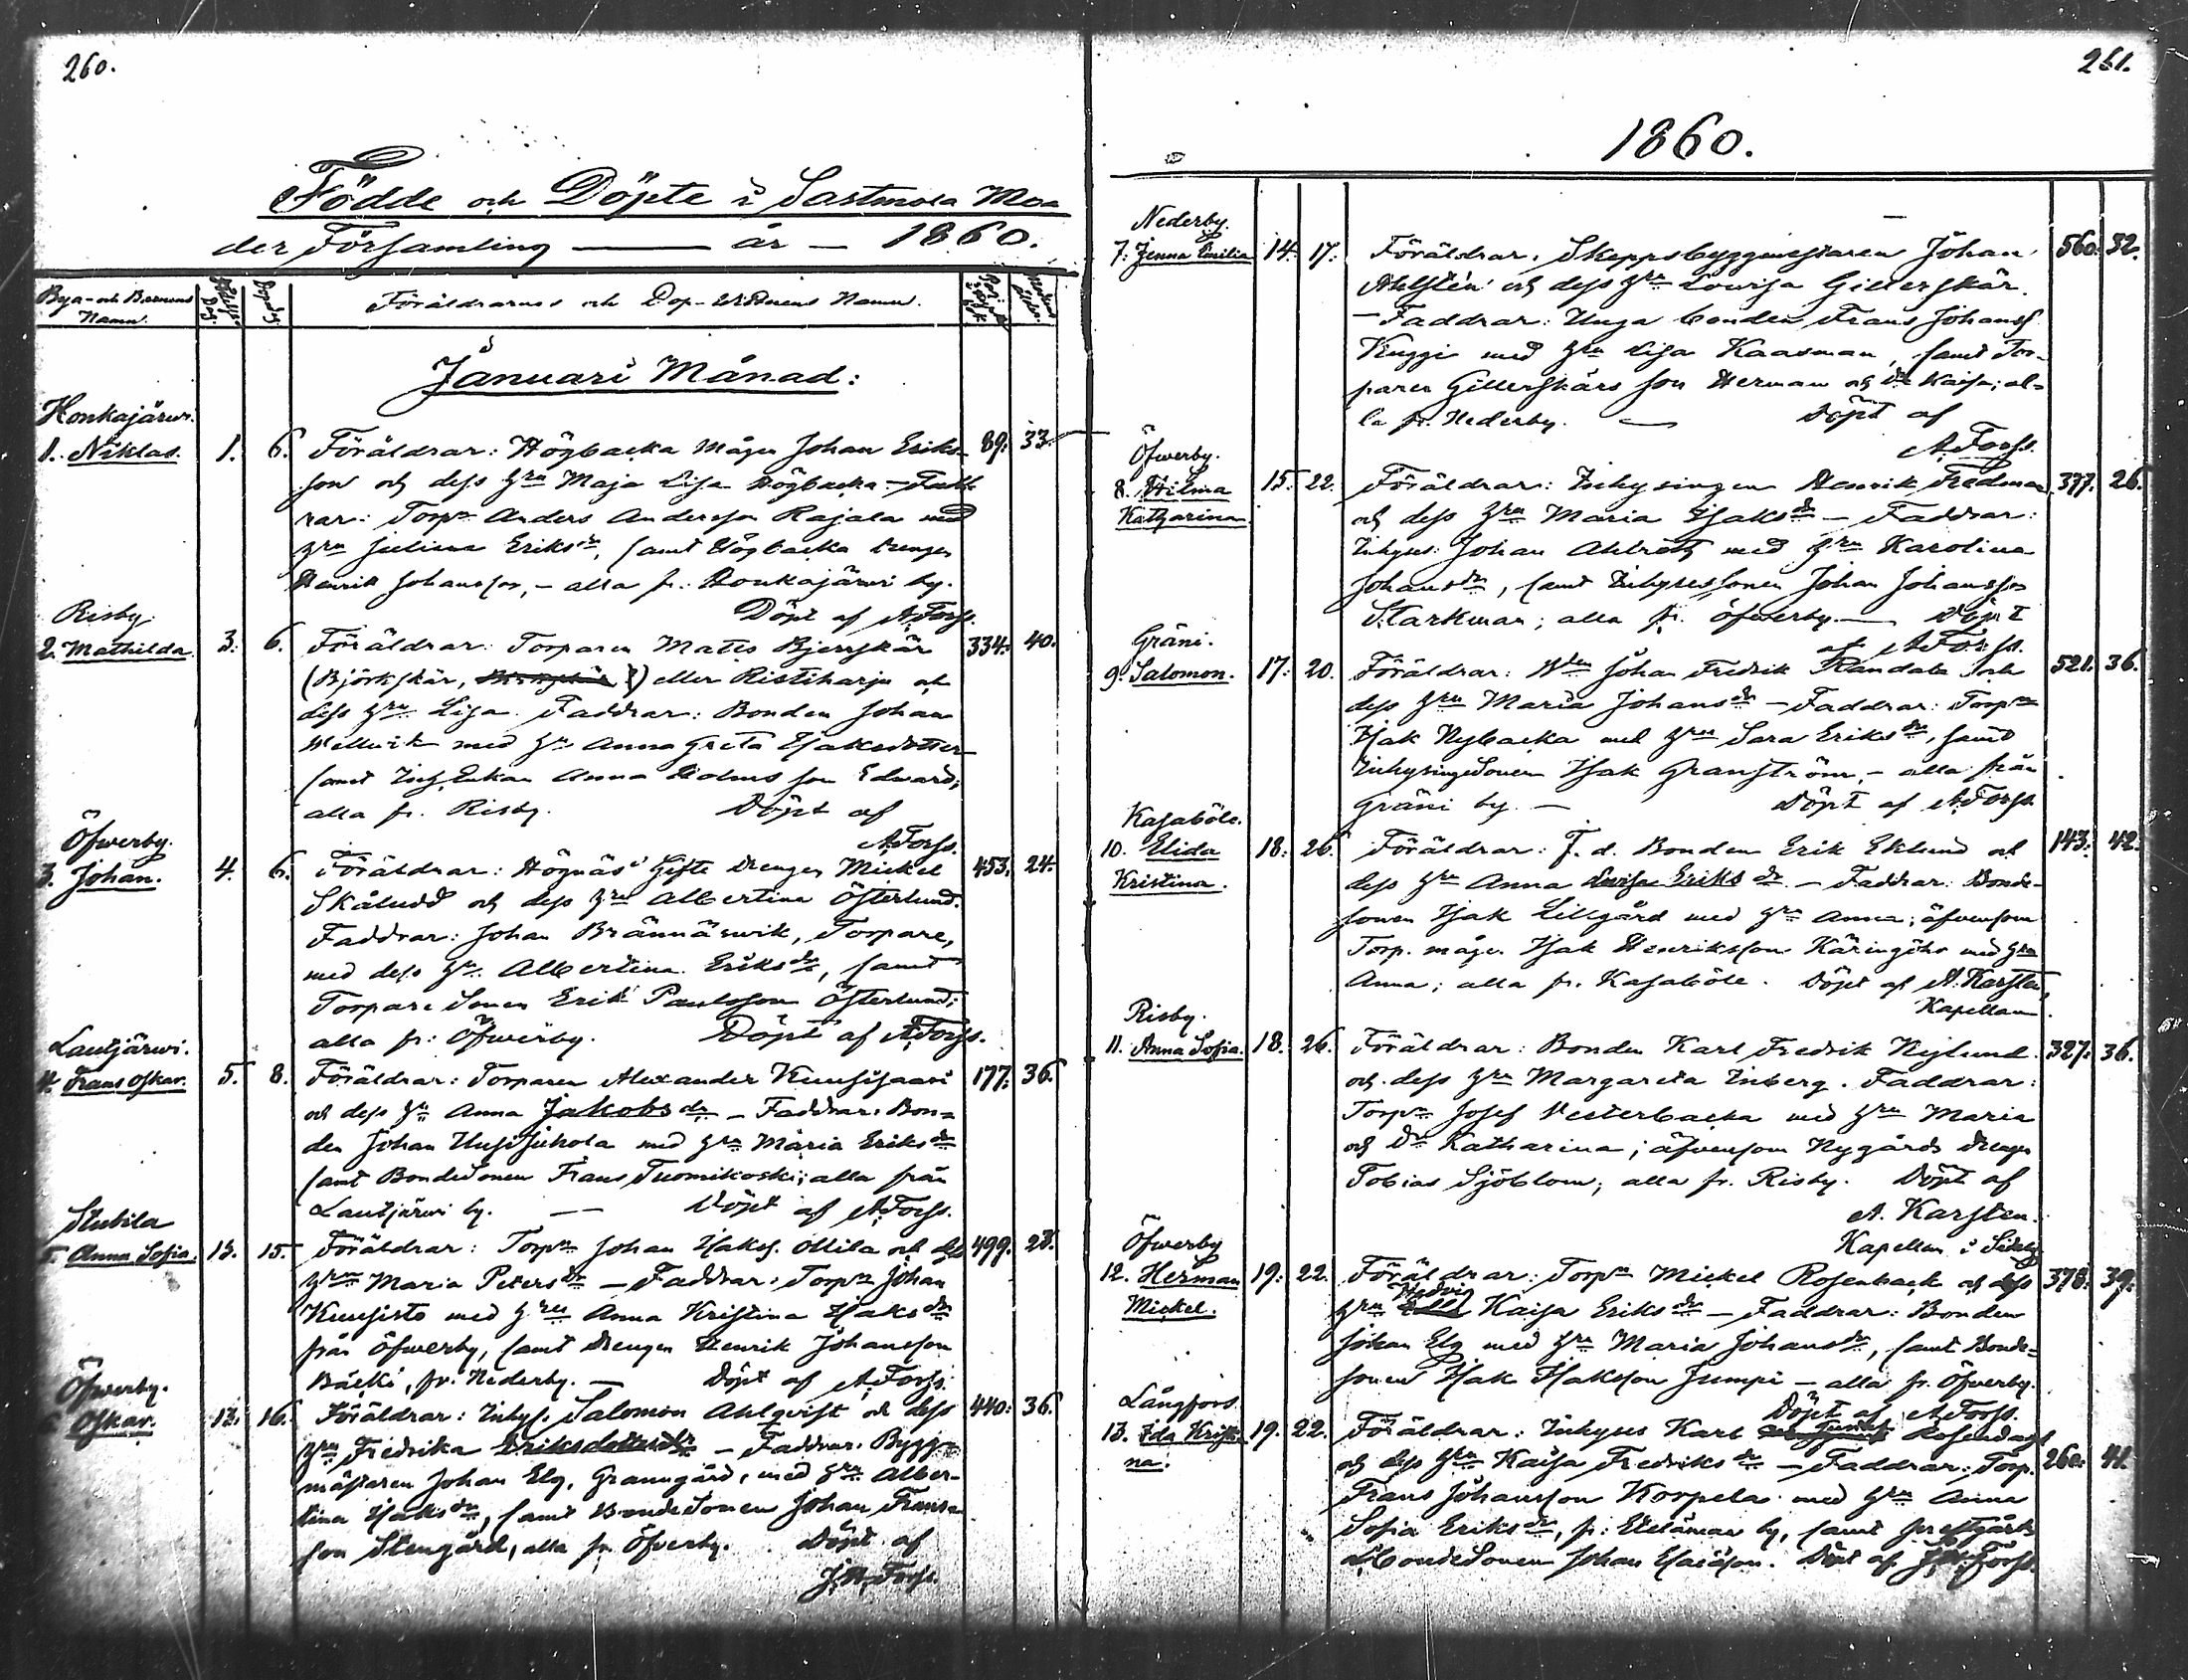 260.
Födde och Döpte i Sastmola Mo-
der Församling — år — 1860.
Bya- och Barnens Namn.
Föräldrarnes och Dop-Vittnens Namn.
Januari Månad:
Honkajärwi.
1. Niklas. 1. 6. Föräldrar: Högbacka mågen Johan Eriks- 89. 33.
son och dess hru Maja Lisa Högbacka. — Fadd-
rar: Torpn Anders Andersson Rajala med
hru Juliana Eriksdr, samt Högbacka drengen
Henrik Johansson, — alla fr. Honkajärwi by.
Döpt af A. Forss.
Risby
2. Mathilda. 3. 6. Föräldrar: Torparen Matts Bjerrskär 334. 40.
(Björkskär, ) eller Ristiharju och
dess hru Lisa. Faddrar: Bonden Johan
Wellwik med hr Anna Greta Isaksdotter
samt Enkan Anna Holms son Edward;
alla fr. Risby. Döpt af
A. Forss.
Öfwerby.
3. Johan. 4. 6. Föräldrar: Högnäs Gifte drengen Mickel 453. 24.
Skåludd och dess hru Albertina Österlund.
Faddrar: Johan Brännäswik, Torpare,
med dess hr. Albertina Eriksdr, samt
Torpare Sonen Erik Paulsson Österlund;
alla fr: Öfwerby. Döpt af A. Forss.
Lautjärwi.
4. Frans Oskar. 5. 8. Föräldrar: Torparen Alexander Kuusisaari 177. 36.
och dess hr Anna Jakobsdr — Faddrar: Bon-
den Johan Uusijukola med hru Maria Eriksdr
samt BondeSonen Frans Tuomikoski; alla från
Lautjärwi by. — Döpt af A. Forss.
Stubila
5. Anna Sofia. 13. 15. Föräldrar: Torpn Johan Isakss. Ollila och dess 499. 28.
hru Maria Petersdr — Faddrar: Torpn Johan
Kuusisto med hru Anna Kristina Isaksdr
från Öfwerby, samt drengen Henrik Johansson
Bäcki, fr. Nederby. — Döpt af A. Forss.
Öfwerby.
6. Oskar. 13. 16. Föräldrar: Inhys. Salomon Ahlqvist och dess 440. 36.
hru Fredrika Eriksdotter — Faddrar: Bygg-
mästaren Johan Elg, Granngård, med hru Alber-
tina Isaksdr, samt BondeSonen Johan Frans-
son Stengård, alla fr. Öfwerby. Döpt af
J. H. Forss.
261.
1860.
Nederby.
7. Jenna Emilia 14. 17. Föräldrar: Skeppsbyggmestaren Johan 560. 32.
Ahlstén och dess hru Lowisa Gillerskär.
— Faddrar: Unga bonden Frans Johanss
Kuggi med hru Lisa Kaasman, samt Tor-
paren Gillerskärs son Herman och dr Kaisa; al-
la fr. Nederby. — Döpt af
A. Forss.
Öfwerby.
8. Wilma Katharina 15. 22. Föräldrar: Inhysingen Henrik Fredman 377. 26.
och dess hru Maria Isaksdr — Faddrar:
Inhyses: Johan Ahlroth med hru Karolina
Johansdr, samt Inhysessonen Johan Johansson
Starkman; alla fr. Öfwerby. — Döpt
af A. Forss.
Gräni.
9. Salomon. 17. 20. Föräldrar: Bdn Johan Fredrik Randala och 521. 36.
dess hru Maria Johansdr — Faddrar: Torpn
Isak Nybacka med hru Sara Eriksdr, samt
InhysingeSonen Isak Granström, — alla från
Gräni by. — Döpt af A. Forss.
Kasaböle.
10. Elida Kristina. 18. 26. Föräldrar: F. d. Bonden Erik Eklund och 143. 42.
dess hr Anna Lovisa Eriksdr. — Faddrar: Bonde-
sonen Isak Lillgård med hr Anna; äfvensom
Torp. mågen Isak Henriksson Käringöhr med hru
Anna; alla fr. Kasaböle. Döpt af A. Karsten,
Kapellan.
Risby.
11. Anna Sofia. 18. 26. Föräldrar: Bonden Karl Fredrik Nylund. 327. 36.
och dess hru Margareta Inberg. Faddrar:
Torpn Josef Vesterbacka med hru Maria
och Dr Katharina; äfvensom Nygårds drengen
Tobias Sjöblom; alla fr. Risby. Döpt af
A. Karsten.
Kapellan i Sideby
Öfwerby
12. Herman Mickel. 19. 22. Föräldrar: Torpn Mickel Rosenback och dess 378. 39.
hru Hedvig Kaisa Eriksdr — Faddrar: Bonden
Johan Elg med hru Maria Johansdr, samt Bonde-
sonen Isak Isaksson Jumpi — alla fr. Öfwerby.
Döpt af A. Forss.
Långfors.
13. Ida Kristi-na. 19. 22. Föräldrar: Inhyses Karl Rosendahl
och dess hru Kaisa Fredriksdr — Faddrar: Torp. 260. 41.
Frans Johansson Korpela med hru Anna
Sofia Eriksdr, fr: Etelämaa by, samt prestgårds
BondeSonen Johan Isaksson. Döpt af J. H. Forss.